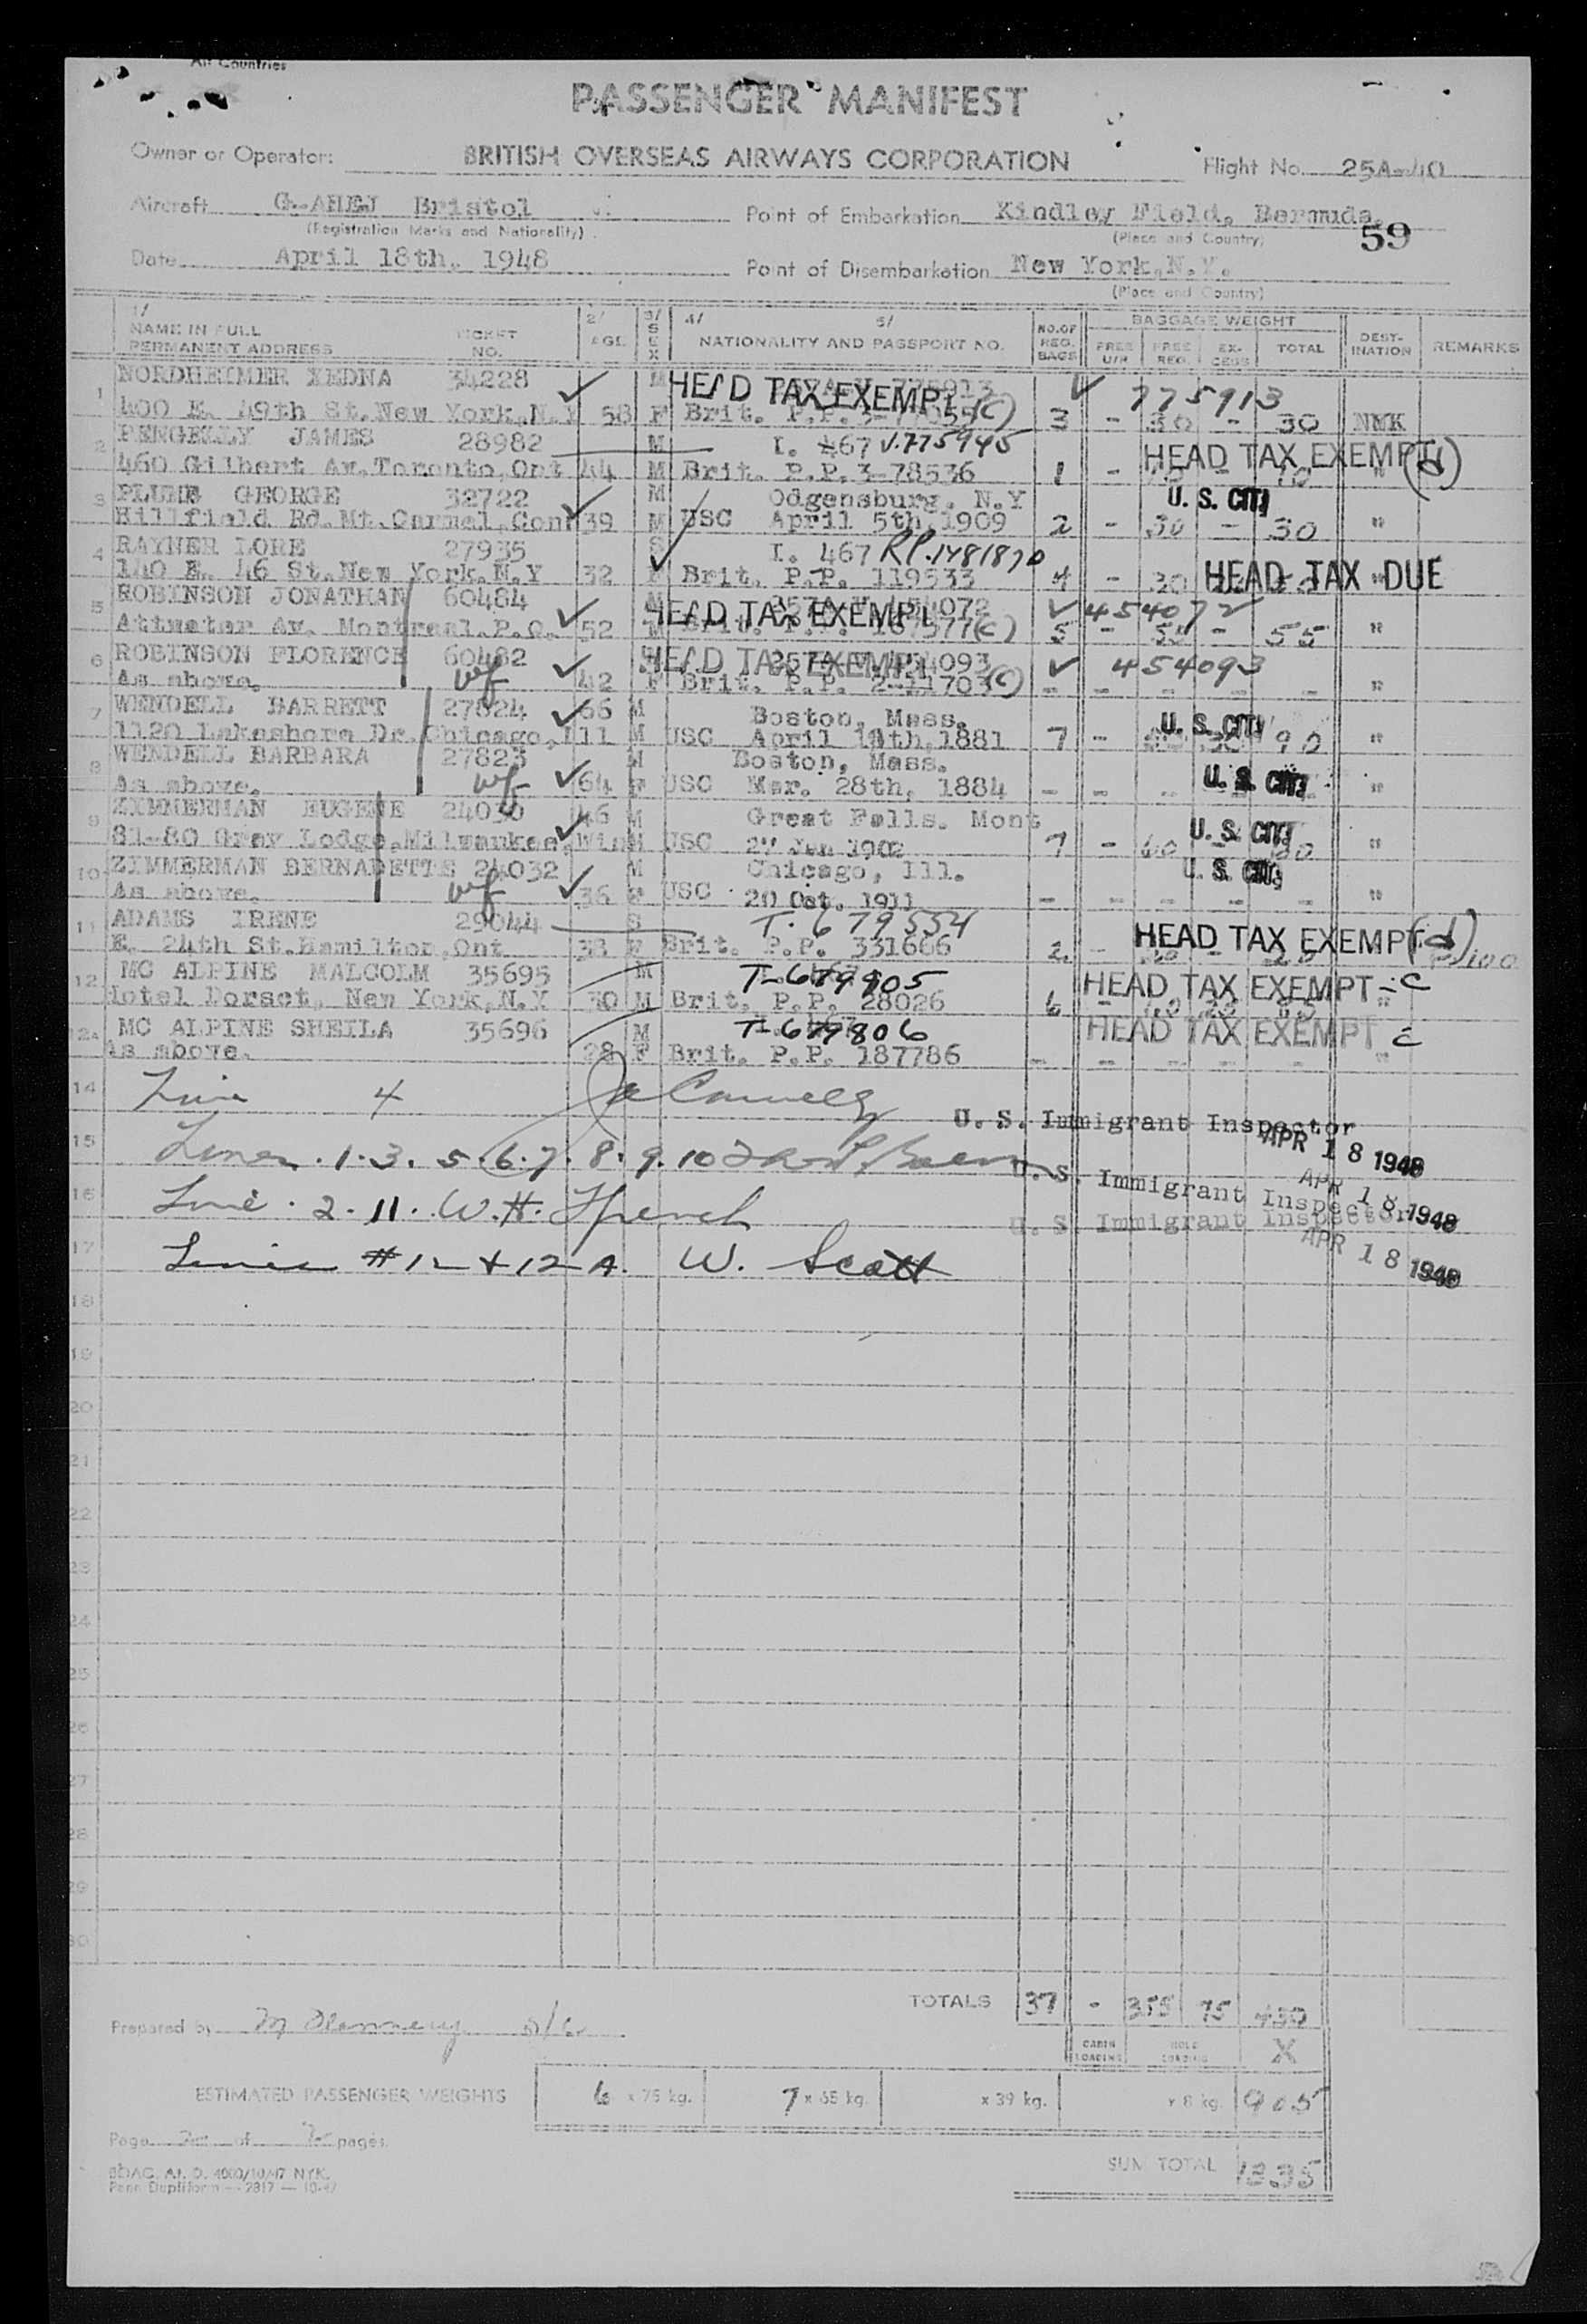 Air Countries
PASSENGER MANIFEST
Owner or Operator: BRITISH OVERSEAS AIRWAYS CORPORATION Flight No. 25A-40
Aircraft G-AHEJ Bristol Point of Embarkation Kindley Field, Bermuda.
(Registration Marks and Nationality) (Place and Country) 59
Date April 18th, 1948 Point of Disembarkation New York, N.Y.
(Place and Country)
1/ 2/ 3/ 4/ 5/ BAGGAGE WEIGHT
NAME IN FULL TICKET AGE SEX NATIONALITY AND PASSPORT NO. NO.OF REG. BAGS FREE U/R FREE REG. EX-CESS TOTAL DEST-INATION REMARKS
PERMANENT ADDRESS NO.
1 NORDHEIMER XEDNA 34228 M HEAD TAX EXEMPT 775913
400 E. 49th St. New York, N.Y 58 F Brit. P.P. (C) 3 - 30 - 30 NYK
2 PENGELLY JAMES 28982 M I. 467 V.775945 HEAD TAX EXEMPT (d)
460 Gilbert Av. Toronto, Ont 44 M Brit. P.P. 3-78536 1 - 10 - 10 "
3 PLUMB GEORGE 32722 M Odgensburg. N.Y U. S. CIT.
Hillfield Rd. Mt. Carmel, Conn 39 M USC April 5th, 1909 2 - 30 - 30 "
4 RAYNER LORE 27935 S I. 467 RP.1481870
140 E. 46 St. New York, N.Y 32 F Brit. P.P. 119533 4 - 30 HEAD TAX DUE "
5 ROBINSON JONATHAN 60484 M HEAD TAX EXEMPT 454072
Attwater Av. Montreal, P.Q. 52 M Brit. P.P. (C) 5 - 55 - 55 "
6 ROBINSON FLORENCE 60482 HEAD TAX EXEMPT 454093
As above. wf 42 F Brit. P.P. 2-11703 (C) - - - - - "
7 WENDELL BARRETT 27824 66 M Boston, Mass. U. S. CIT.
1120 Lakeshore Dr. Chicago, Ill M USC April 18th, 1881 7 - 90 "
8 WENDELL BARBARA 27823 M Boston, Mass.
As above. wf 64 F USC Mar. 28th, 1884 - - - U. S. CIT. "
9 ZIMMERMAN EUGENE 24030 46 M Great Falls. Mont U. S. CIT.
81-80 Gray Lodge, Milwaukee, Win M USC 27 Jan 1902 7 - 60 "
10 ZIMMERMAN BERNADETTE 24032 M Chicago, Ill. U. S. CIT.
As above. wf 36 F USC 20 Oct. 1911 - - - - - "
11 ADAMS IRENE 29044 S T. 679554
E. 24th St. Hamilton, Ont 38 F Brit. P.P. 331666 2 - HEAD TAX EXEMPT (d) 100
12 MC ALPINE MALCOLM 35695 M T-679905 HEAD TAX EXEMPT - C
Hotel Dorset, New York, N.Y 30 M Brit. P.P. 28026 6 "
12A MC ALPINE SHEILA 35696 M T-679806 HEAD TAX EXEMPT C
As above. 28 F Brit. P.P. 187786 - - - - - "
14 Line 4 U. S. Immigrant Inspector
APR 18 1948
15 Lines . 1. 3. 5. 6. 7. 8. 9. 10 U. S. Immigrant Inspector
APR 18 1948
16 Line . 2. 11. W. H. French U. S. Immigrant Inspector
APR 18 1948
17 Lines # 12 + 12 A. W. Scott
18
19
20
21
22
23
24
25
26
27
28
29
30
TOTALS 37 - 355 75 430
Prepared by
CABIN LOADING HOLD LOADING X
ESTIMATED PASSENGER WEIGHTS 6 x 75 kg. 7 x 65 kg. x 39 kg. x 8 kg. 905
Page 2 of 2 pages.
BOAC. AI. D. 4000/10/47 NYK.
Penn Dupliform — 2817 — 10-47
SUM TOTAL 1335